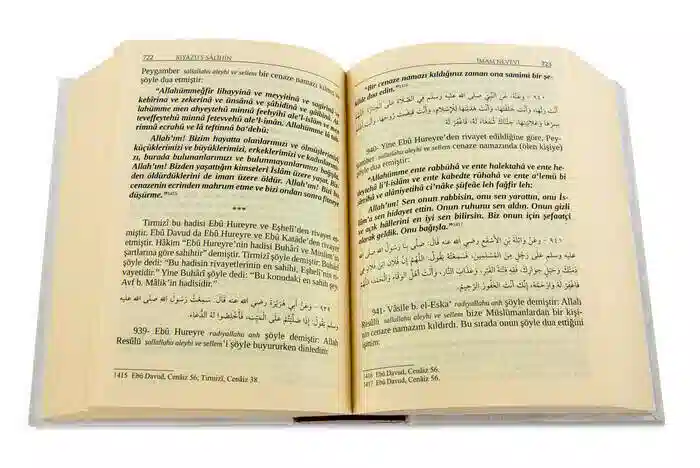 722 RİYAZÜ'S-SÂLİHÎN
Peygamber sallallahu aleyhi ve sellem bir cenaze namazı kıldı ve
şöyle dua etmiştir:
“Allahümmeğfir lihayyinâ ve meyyitinâ ve sağirinâ ve
kebirinâ ve zekerinâ ve ünsânâ ve şâhidinâ ve gâibinâ. Al-
lahümme men ahyeytehû minnâ feehyihi ale'l-islâm ve men
teveffeytehû minnâ fetevvehû ale'l-imân. Allahümme lâ tah-
rimnâ ecrahû ve lâ teftinnâ ba'dehû;
Allah'ım! Bizim hayatta olanlarımızı ve ölmüşlerimizi,
küçüklerimizi ve büyüklerimizi, erkeklerimizi ve kadınlarımı-
zı, burada bulunanlarımızı ve bulunmayanlarımızı bağışla.
Allah'ım! Bizden yaşattığın kimseleri İslâm üzere yaşat. Biz-
den öldürdüklerini de iman üzere öldür. Allah'ım! Bizi bu
cenazenin ecrinden mahrum etme ve bizi ondan sonra fitneye
düşürme.”1415
***
Tirmizî bu hadisi Ebû Hureyre ve Eşhelî'den rivayet et-
miştir. Ebû Davud da Ebû Hureyre ve Ebû Katâde'den rivayet
etmiştir. Hâkim “Ebû Hureyre'nin hadisi Buhârî ve Müslim'in
şartlarına göre sahihtir” demiştir. Tirmizî şöyle demiştir: Buhârî
şöyle dedi: “Bu hadisin rivayetlerinin en sahihi, Eşhelî'nin ri-
vayetidir.” Yine Buhârî şöyle dedi: “Bu konudaki en sahih şey
Avf b. Mâlik'in hadisidir.”
٩٣٩ - وعَنْ أَبي هُرَيْرَةَ رضي الله عنه قال: سَمِعْتُ رَسُولَ اللهِ صلى الله عليه
وسلم يقول: إِذَا صَلَّيْتُمْ عَلَى المَيِّتِ، فَأَخْلِصُوا لَهُ الدُّعَاءَ.
939- Ebû Hureyre radıyallahu anh şöyle demiştir: Allah
Resûlü sallallahu aleyhi ve sellem'i şöyle buyururken dinledim:
1415 Ebû Davud, Cenâiz 56; Tirmizî, Cenâiz 38.
İMAM NEVEVÎ 723
“Bir cenaze namazı kıldığınız zaman ona samimi bir şe-
kilde dua edin.”
٩٤٠ - وَعَنْهُ، عَنِ النَّبِيِّ صلى الله عليه وسلم في الصَّلاةِ عَلَى
أَنْتَ رَبُّهَا، وَأَنْتَ خَلَقْتَهَا، وَأَنْتَ هَدَيْتَهَا لِلإِسْلامِ، وَأَنْتَ قَبَضْتَ رُوحَهَا،
وَعَلانِيَتِهَا، جِئْنَاكَ شُفَعَاءَ لَهُ، فَاغْفِرْ لَهُ
940- Yine Ebû Hureyre'den rivayet edildiğine göre, Pey-
gamber sallallahu aleyhi ve sellem cenaze namazında (ölen kişiye)
şöyle dua etmiştir:
“Allahümme ente rabbühâ ve ente halektahâ ve ente he-
deytehâ li'l-islâm ve ente kabedte rûhahâ ve ente a'lemü bi
sirrihâ ve alâniyetihâ ci'nâke şüfeâe leh fağfir leh;
Allah'ım! Sen onun rabbisin, onu sen yarattın, onu İs-
lâm'a sen hidayet ettin. Onun ruhunu sen aldın. Onun gizli
ve açık hâllerini en iyi sen bilirsin. Biz onun için şefaatçi
olarak geldik. Onu bağışla.”
٩٤١ - وَعَنْ وَاثِلَةَ بْنِ الأَسْقَعِ رضي الله عنه قَالَ: صَلَّى بِنَا رَسُولُ اللهِ
وسلم عَلَى رَجُلٍ مِنَ المُسْلِمِينَ، فَسَمِعْتُهُ يَقُولُ:
ذِمَّتِكَ وَحَبْلِ جِوَارِكَ، فَقِهِ فِتْنَةَ القَبْرِ، وَعَذَابَ النَّارِ، وَأَنْتَ أَهْلُ الوَفَاءِ وَالحَمْدِ،
فَاغْفِرْ لَهُ وَارْحَمْهُ، إِنَّكَ أَنْتَ الغَفُورُ الرَّحِيمُ.
941- Vâsile b. el-Eska' radıyallahu anh şöyle demiştir: Allah
Resûlü sallallahu aleyhi ve sellem bize Müslümanlardan bir kişi-
nin cenaze namazını kıldırdı. Bu sırada onun şöyle dua ettiğini
işittim:
1416 Ebû Davud, Cenâiz 56.
1417 Ebû Davud, Cenâiz 56.